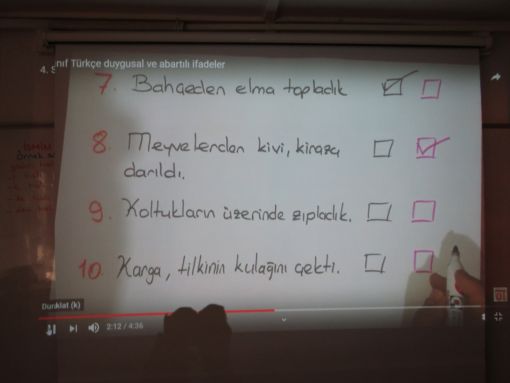 4. S nıf Türkçe duygusal ve abartılı ifadeler
7. Bahçeden elma topladık
8. Meyvelerden kivi, kiraza
darıldı.
9. Koltukların üzerinde zıpladık.
10. Karga, tilkinin kulağını çekti.
Duraklat (k)
2:12 / 4:36